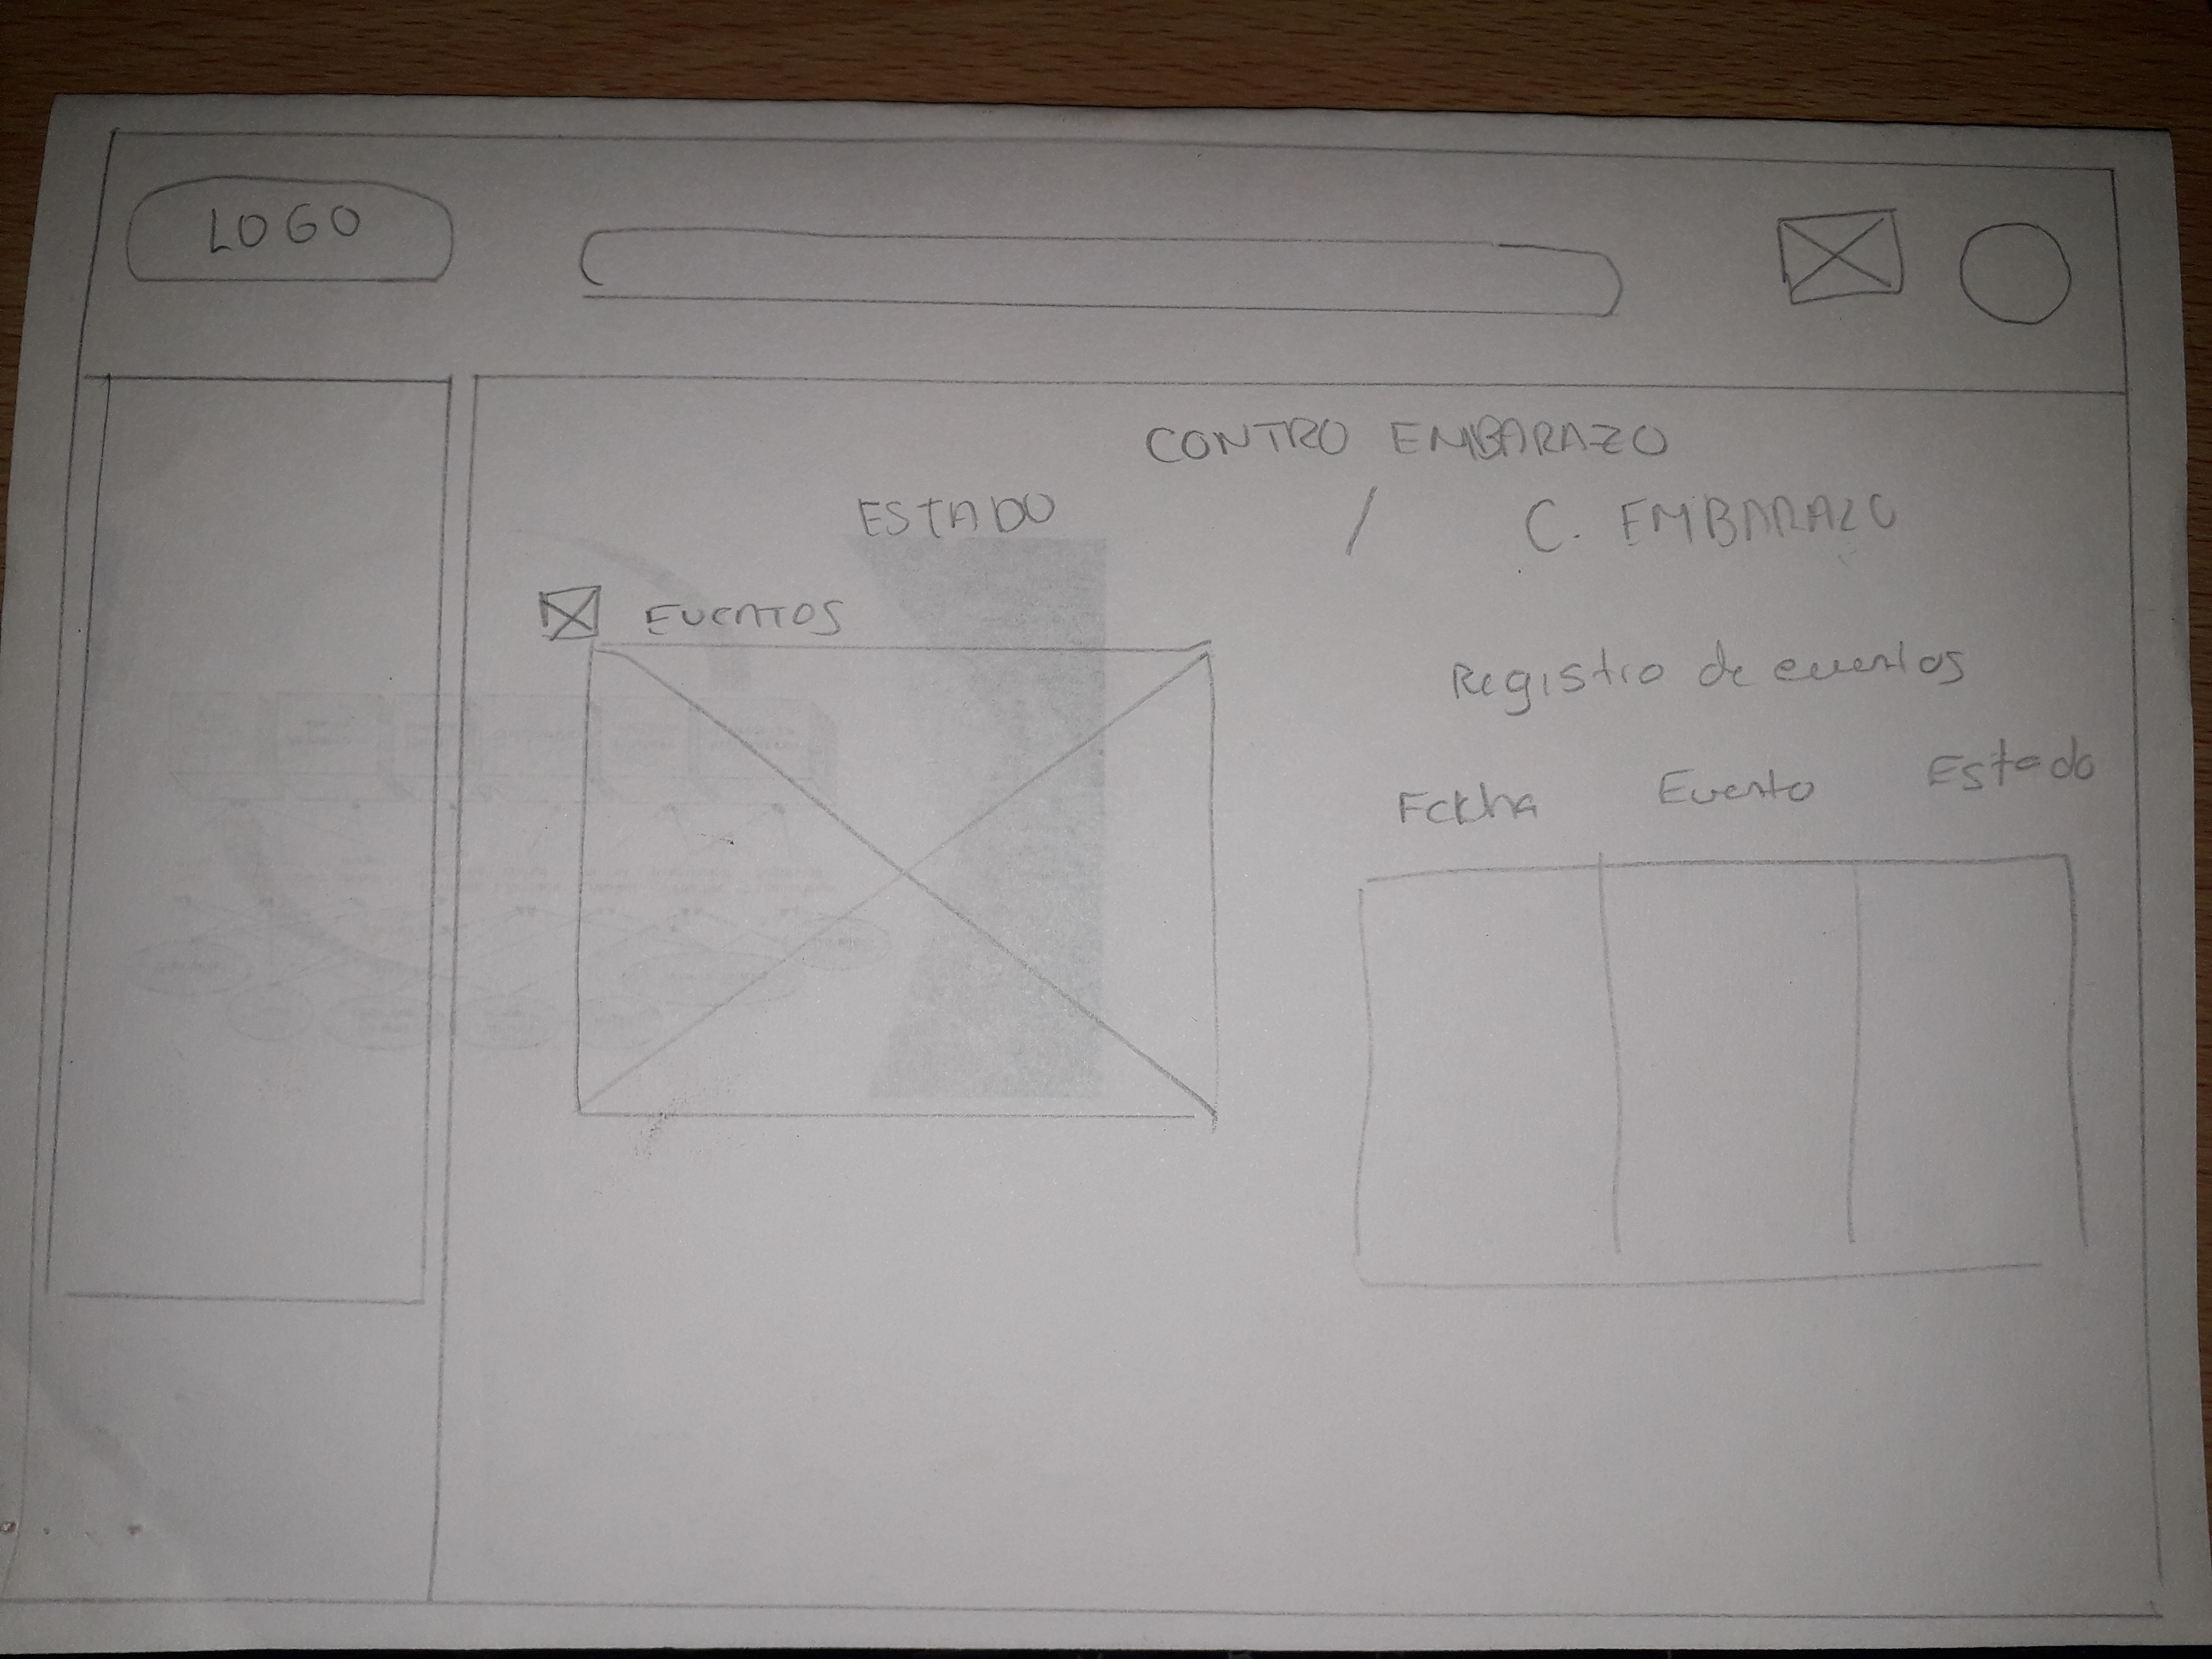 LOGO
CONTRO EMBARAZO
ESTADO / C. EMBARAZO
EVENTOS
Registro de eventos
Fecha Evento Estado